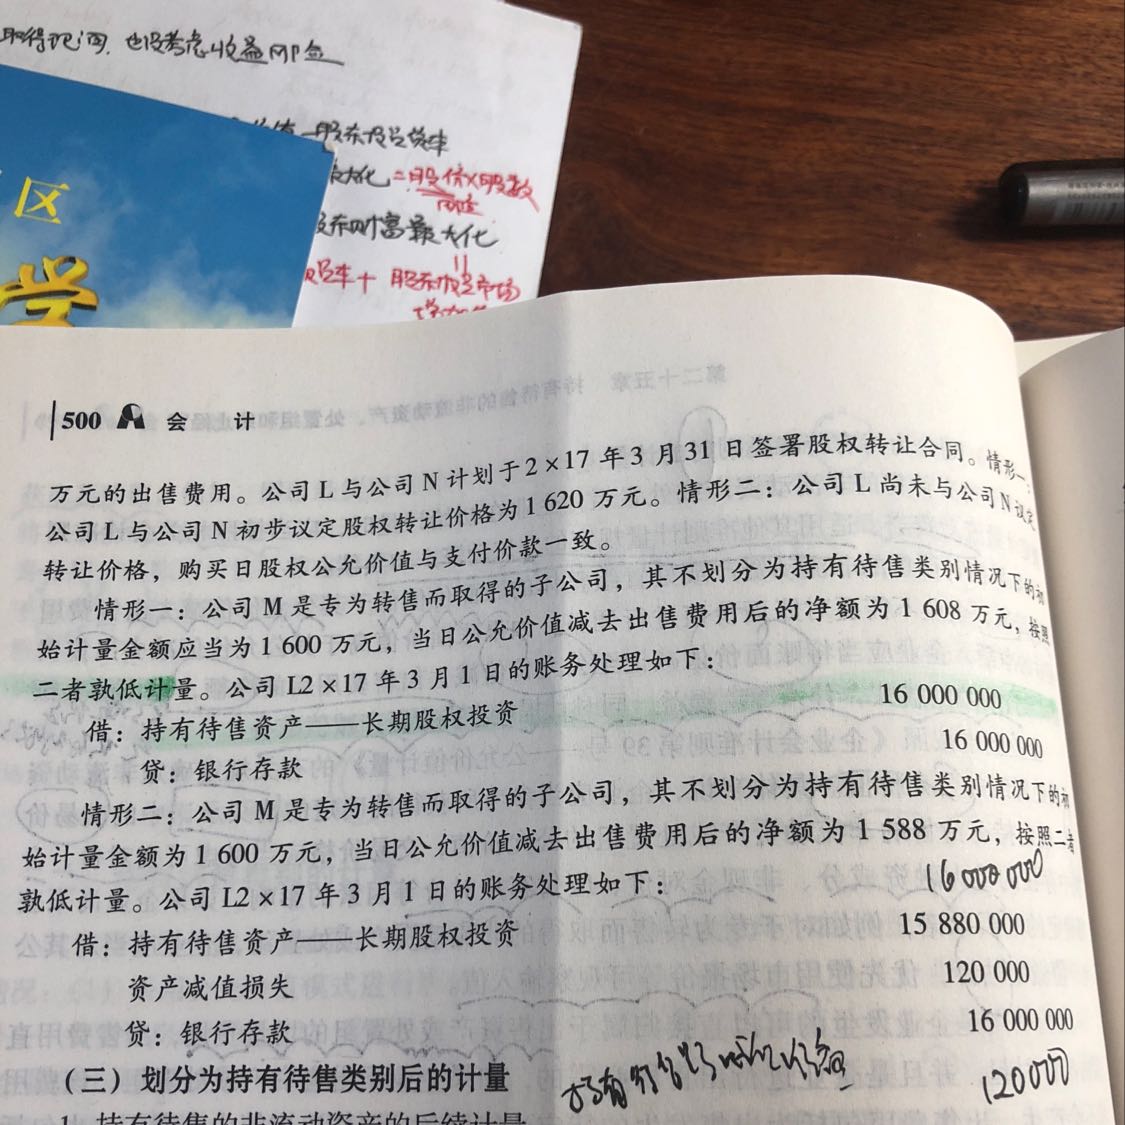 也没考虑收益
区
学
股东投资资本
大化=股价×股数
股东财富最大化
股东投资市场
500 会 计
万元的出售费用。公司L与公司N计划于2×17年3月31日签署股权转让合同。情形一:
公司L与公司N初步议定股权转让价格为1 620万元。情形二:公司L尚未与公司N议定
转让价格,购买日股权公允价值与支付价款一致。
情形一:公司M是专为转售而取得的子公司,其不划分为持有待售类别情况下的初
始计量金额应当为1 600万元,当日公允价值减去出售费用后的净额为1 608万元,按照
二者孰低计量。公司L2×17年3月1日的账务处理如下:
借:持有待售资产——长期股权投资 16 000 000
贷:银行存款 16 000 000
情形二:公司M是专为转售而取得的子公司,其不划分为持有待售类别情况下的初
始计量金额为1 600万元,当日公允价值减去出售费用后的净额为1 588万元,按照二者
孰低计量。公司L2×17年3月1日的账务处理如下:
16000000
借:持有待售资产——长期股权投资 15 880 000
资产减值损失 120 000
贷:银行存款 16 000 000
120000
(三)划分为持有待售类别后的计量
1. 持有待售的非流动资产的后续计量